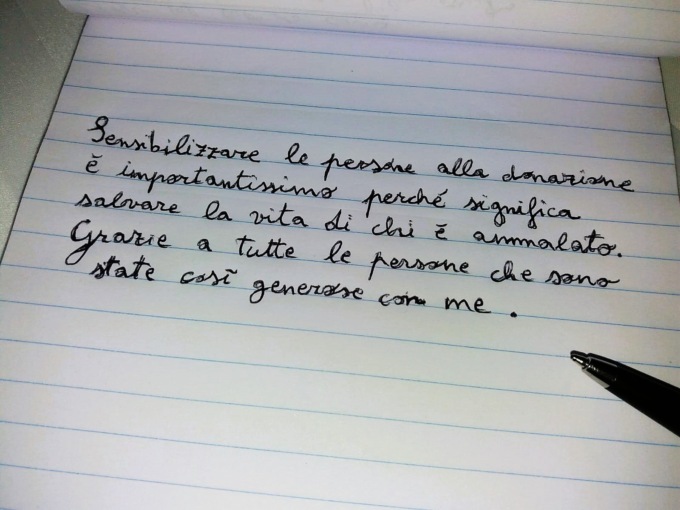 Sensibilizzare le persone alla donazione
è importantissimo perché significa
salvare la vita di chi è ammalato.
Grazie a tutte le persone che sono
state così generose con me.